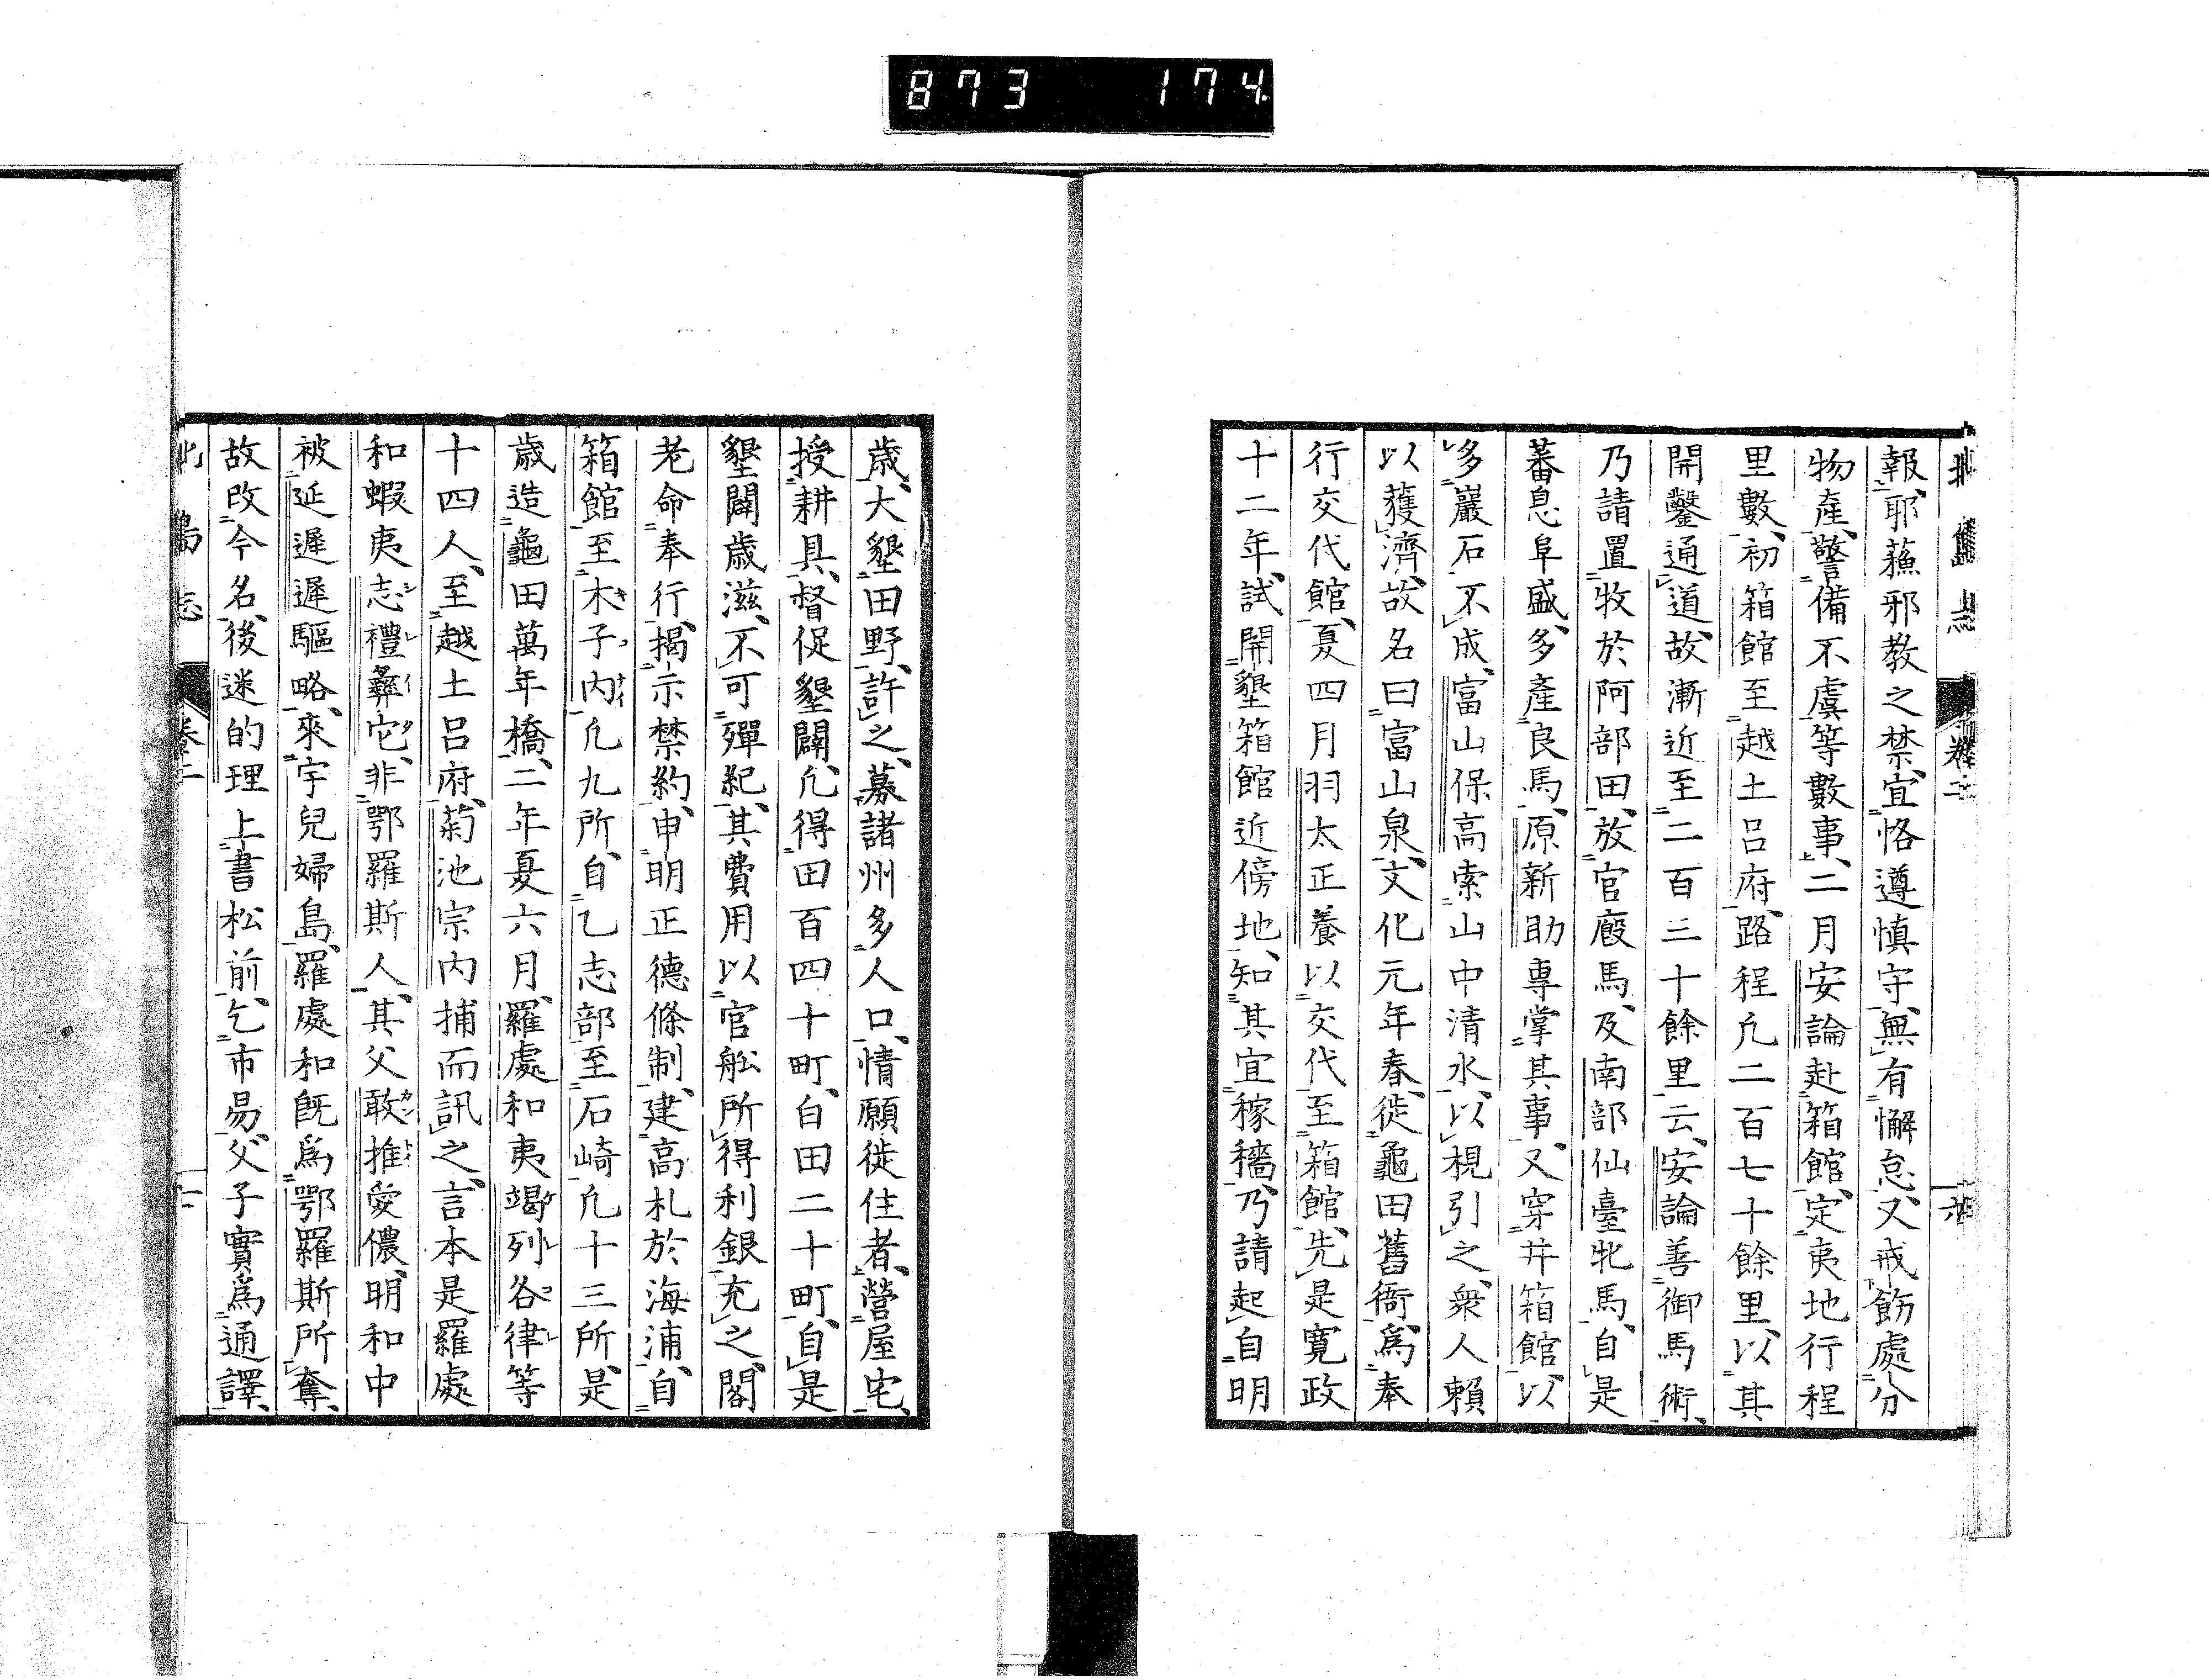 873 174
北島志 卷二 六
報、耶蘇邪教之禁、宜恪遵慎守、無有懈怠、又戒飭處分
物產、警備不虞等數事、二月安論赴箱館、定夷地行程
里數、初箱館至越土呂府、路程凢二百七十餘里、以其
開鑿通道、故漸近至二百三十餘里云、安論善御馬術、
乃請置牧於阿部田、放官廐馬、及南部仙臺牝馬、自是
蕃息阜盛、多產良馬、原新助專掌其事、又穿井箱館、以
多巖石不成、富山保高索山中清水、以梘引之、衆人賴
以獲濟、故名曰富山泉、文化元年春、徙龜田舊衙、爲奉
行交代館、夏四月羽太正養以交代至箱館、先是寛政
十二年、試開墾箱館近傍地、知其宜稼穡、乃請起自明
歳、大墾田野、許之、募諸州多人口、情願徙住者、營屋宅、
授耕具、督促墾闢、凢得田百四十町、白田二十町、自是
墾闢歳滋、不可殫紀、其費用以官舩所得利銀充之、閣
老命奉行、揭示禁約、申明正德條制、建高札於海浦、自
箱館至木子内凢九所、自乙志部至石崎凢十三所、是
歳造龜田萬年橋、二年夏六月、羅處和夷竭列各律等
十四人、至越土呂府、菊池宗内捕而訊之、言本是羅處
和蝦夷志禮彝它、非鄂羅斯人、其父敢推愛儂、明和中
被延遲遲驅略、來宇兒婦島、羅處和旣爲鄂羅斯所奪、
故改今名、後迷的理上書松前、乞市易、父子實爲通譯、
北島志 卷二